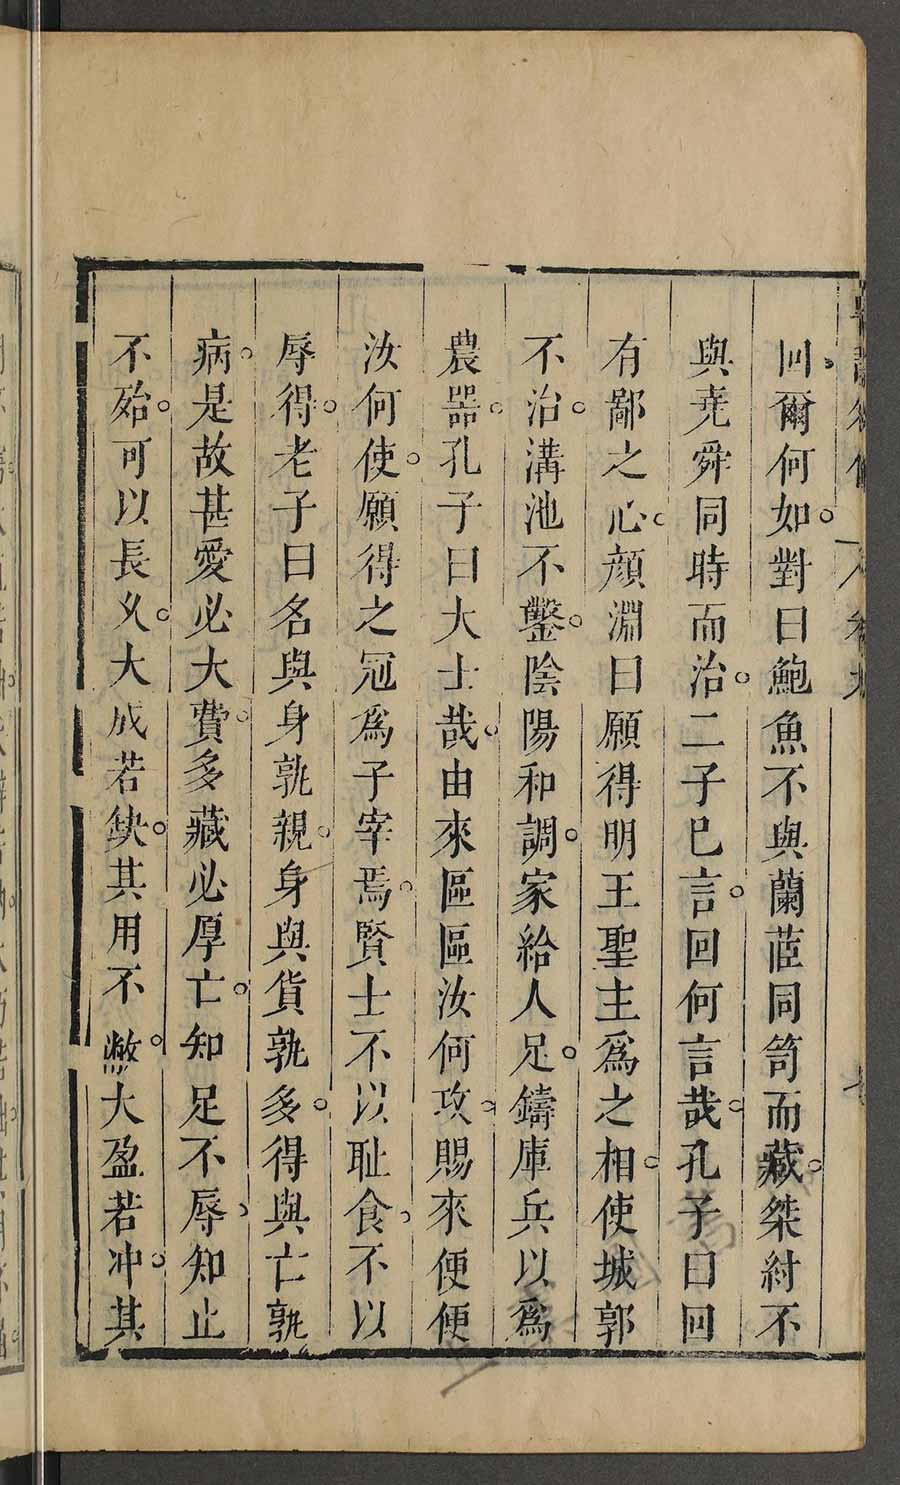 回爾何如對曰鮑魚不與蘭茝同笥而藏桀紂不
與堯舜同時而治二子已言回何言哉孔子曰回
有鄙之心顔淵曰願得明王聖主爲之相使城郭
不治溝池不鑿陰陽和調家給人足鑄庫兵以爲
農器孔子曰大士哉由來區區汝何攻賜來便便
汝何使願得之冠爲子宰焉賢士不以耻食不以
辱得老子曰名與身孰親身與貨孰多得與亡孰
病是故甚愛必大費多藏必厚亡知足不辱知止
不殆可以長乆大成若缺其用不敝大盈若冲其